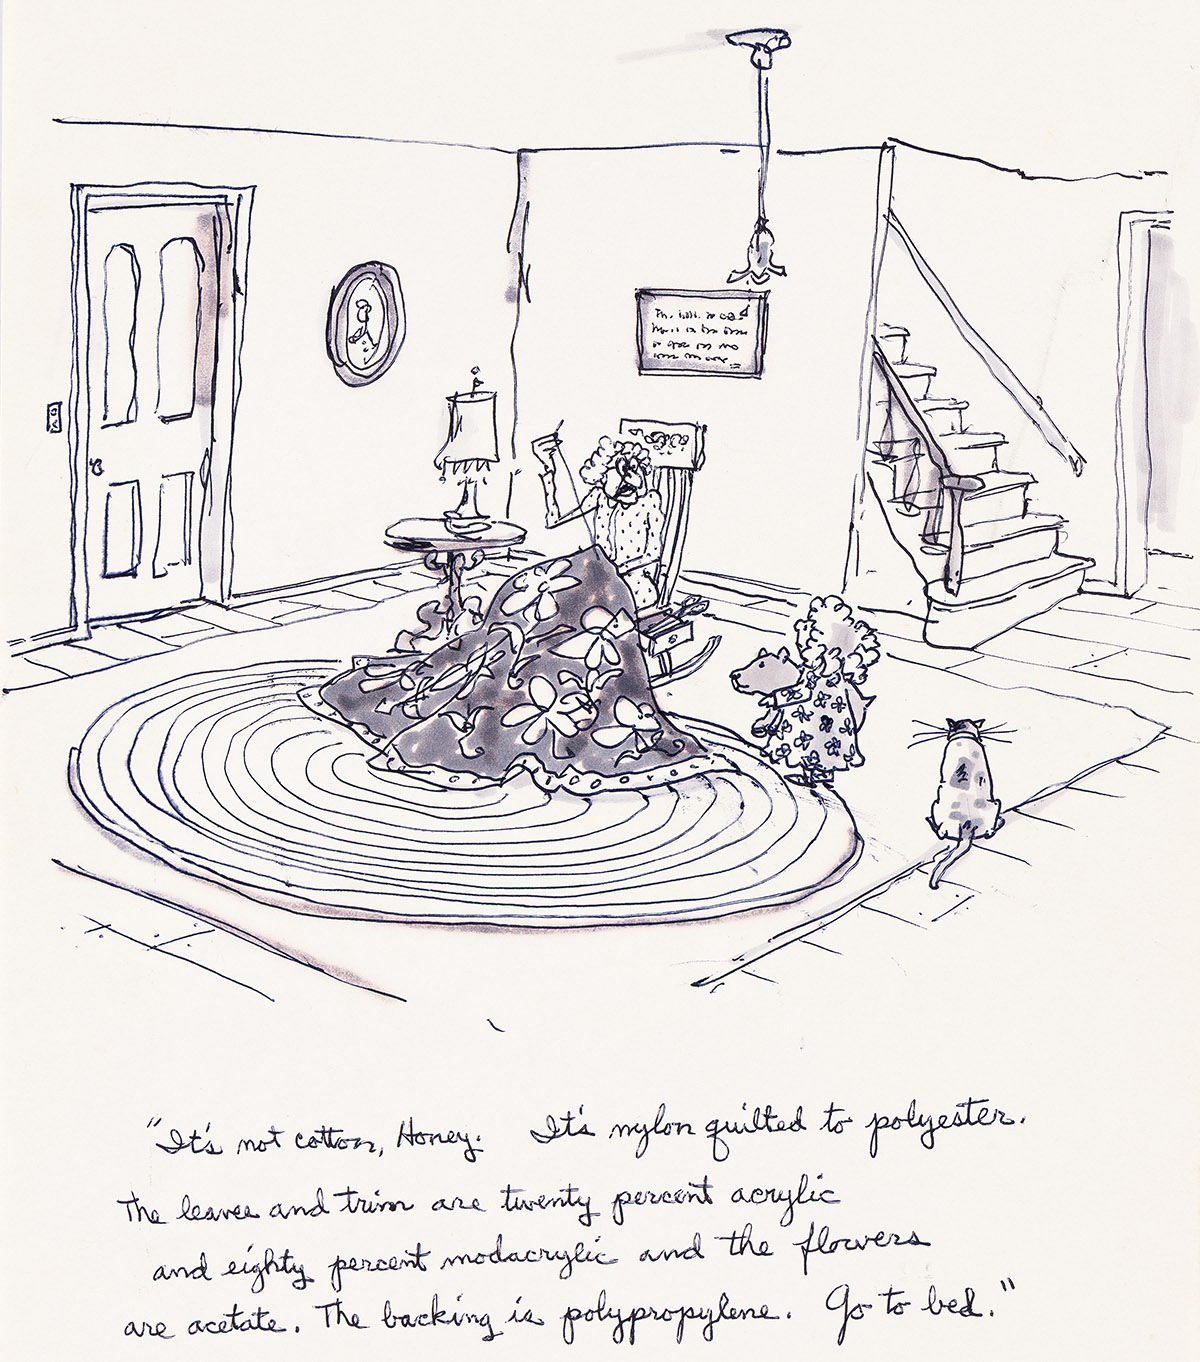 "It's not cotton, Honey. It's nylon quilted to polyester.
The leaves and trim are twenty percent acrylic
and eighty percent modacrylic and the flowers
are acetate. The backing is polypropylene. Go to bed."